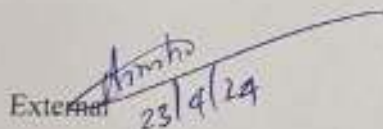 External
23/4/24